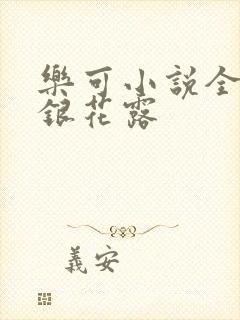 樂可小説全
銀花露
義安